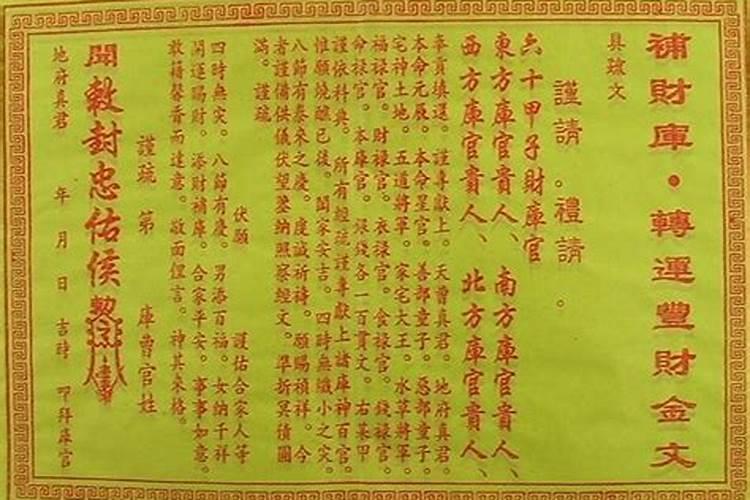 補財庫•轉運豐財金文
具疏文
謹請。禮請。
六十甲子財庫官
東方庫官貴人、南方庫官貴人、
西方庫官貴人、北方庫官貴人、
奉貢填還。謹專獻上。天曹真君。地府真君。
本命元辰。本命星官。善部童子。惡部童子。
宅神土地。五道將軍。家宅大王。水草將軍。
福祿官。財祿官。衣祿官。食祿官。錢祿官。
命祿官。本庫官。銀錢各一百貫文。右某甲
謹依科典。所有經疏謹專獻上諸庫神百官。
惟願燒醮已後。闔家安吉。四時無纖小之災。
八節有泰來之慶。虔誠祈禱。願賜禎祥。今
者謹備供儀伏望鑒納照察經文。準折冥債圓
滿。謹疏。
伏願　謹佑合家人等
四時無災。八節有慶。男添百福。女納千祥
開運賜財。添財補庫。合家平安。事事如意。
散藉馨香而達意。敬面俚言。神其來格。
謹疏　第　庫曹官姓
開敕封忠佑侯
地府真君　年　月　日　吉時　叩拜庫官